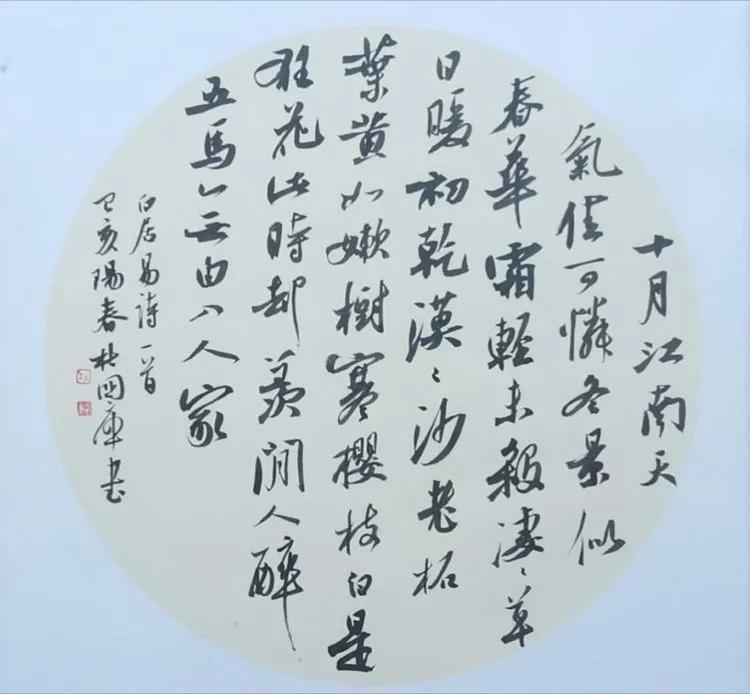 十月江南天
氣佳可憐冬景似
春華霜輕未殺淒〻草
日暖初乾漠〻沙老柘
葉黃如嫩樹寒櫻枝白是
狂花此時却羨閒人醉
五馬無由入人家
白居易詩一首
己亥陽春杜國庫书